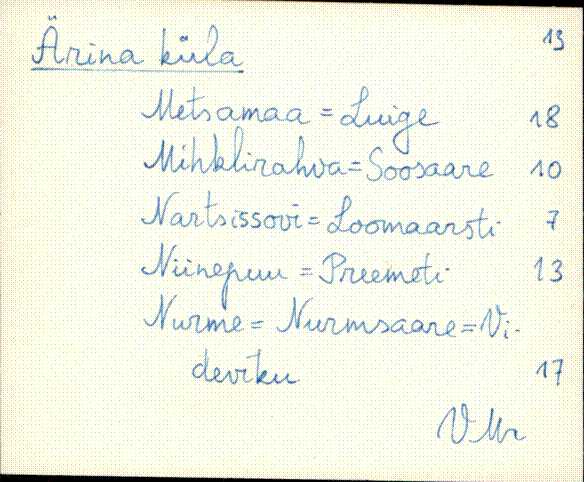 13
Ärina küla
Metsamaa = Luige 18
Mihklirahva = Soosaare 10
Nartsissovi = Loomaarsti 7
Niinepuu = Preemeti 13
Nurme = Nurmsaare = Vi-
deviku 17
V Mr